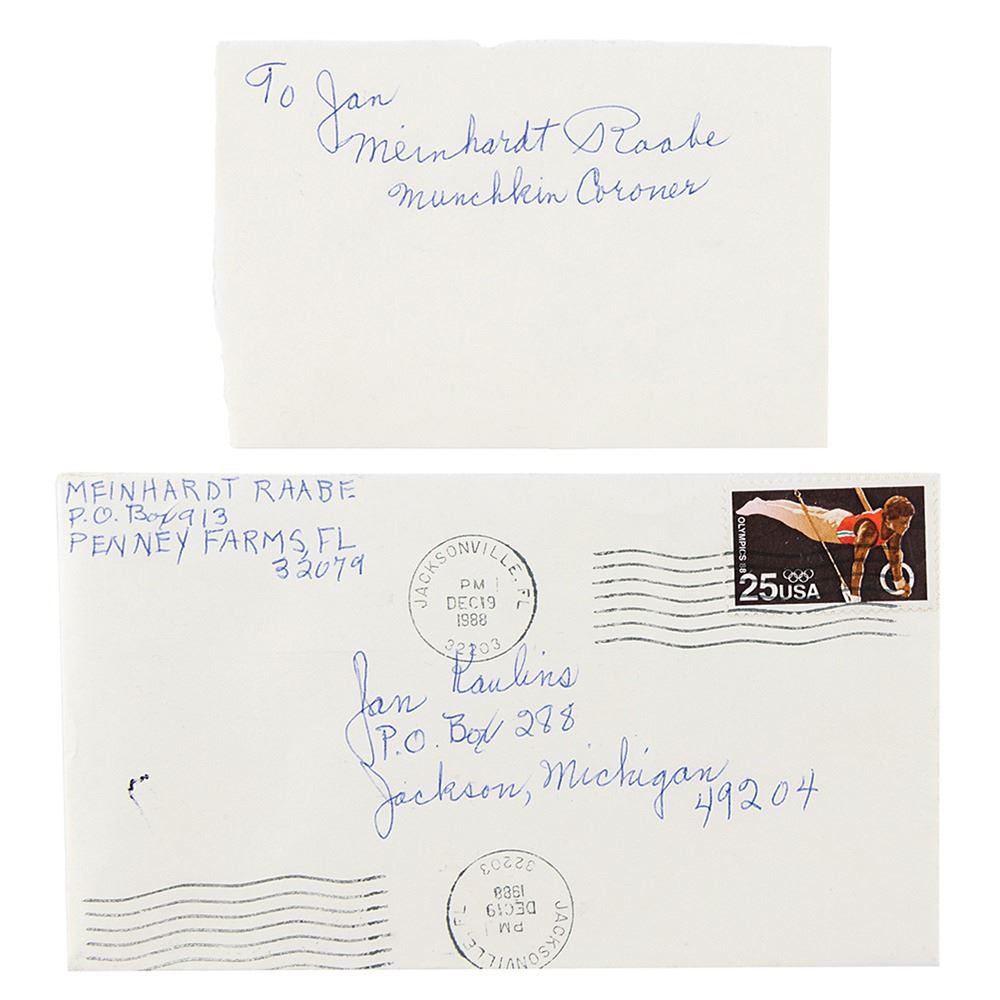 To Jan
Meinhardt Raabe
Munchkin Coroner
MEINHARDT RAABE
P.O. Box 913
PENNEY FARMS, FL
32079
JACKSONVILLE, FL
PM
DEC 19
1988
32203
OLYMPICS 88
25 USA
Jan Raulins
P.O. Box 288
Jackson, Michigan
49204
JACKSONVILLE, FL
PM
DEC 19
1988
32203